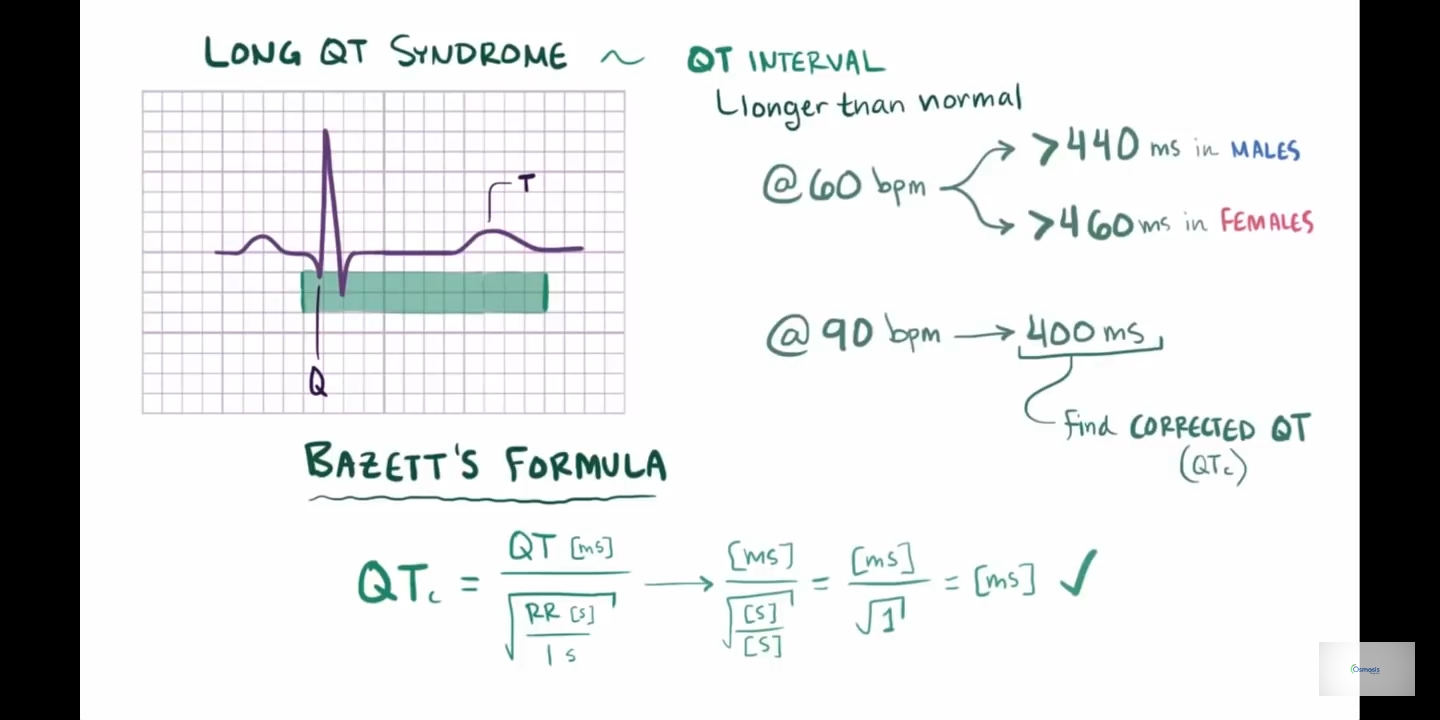 LONG QT SYNDROME ~ QT INTERVAL
Longer than normal
@ 60 bpm
>440 ms in MALES
>460 ms in FEMALES
T
Q
@ 90 bpm → 400 ms
find CORRECTED QT
(QTc)
BAZETT'S FORMULA
QTc = QT [ms] / √(RR [s] / 1 s) → [ms] / √([s] / [s]) = [ms] / √1 = [ms] ✓
Osmosis